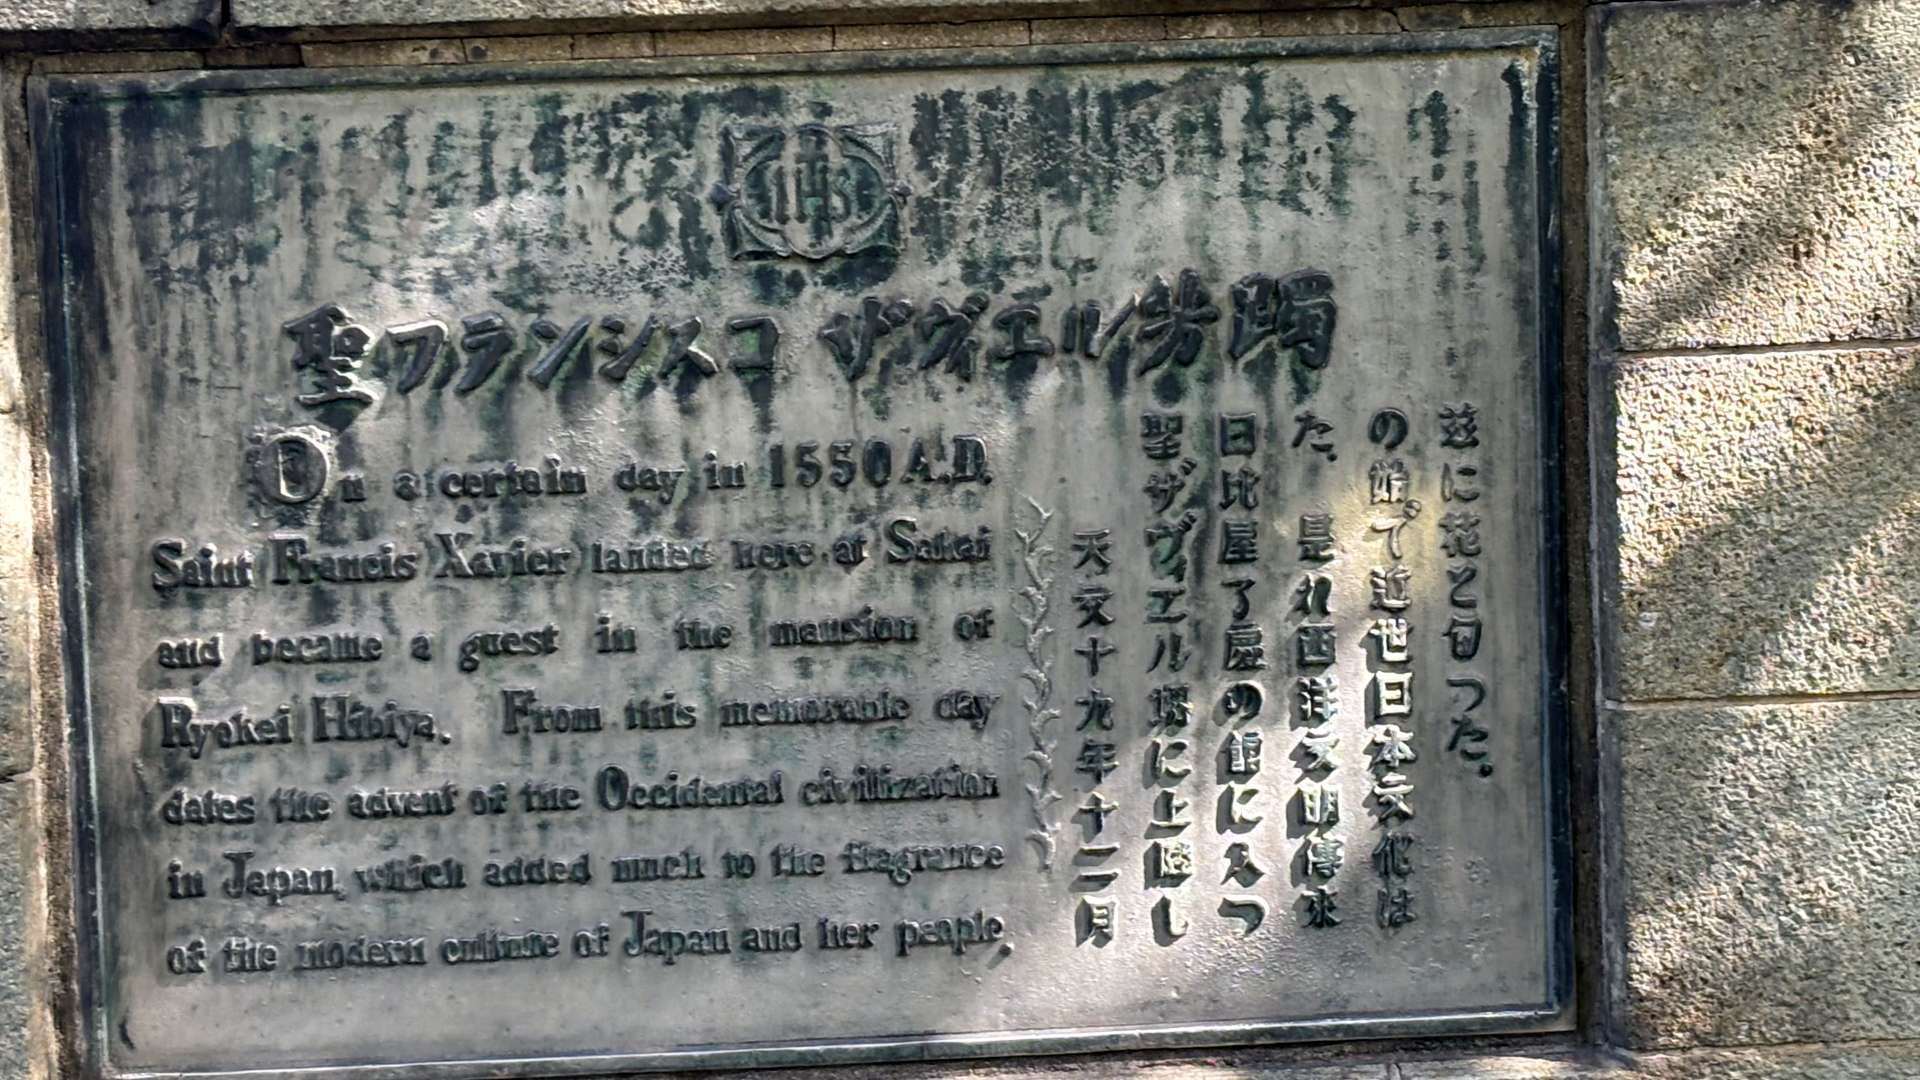 IHS
聖フランシスコ ザヴィエル芳躅
On a certain day in 1550 A.D.
Saint Francis Xavier landed here at Sakai
and became a guest in the mansion of
Ryokei Hibiya. From this memorable day
dates the advent of the Occidental civilization
in Japan, which added much to the fragrance
of the modern culture of Japan and her people,
天文十九年十二月
聖ザヴィエル堺に上陸し
日比屋了慶の館に入つ
た、是れ西洋文明傳來
の始で近世日本文化は
茲に花と匂つた。